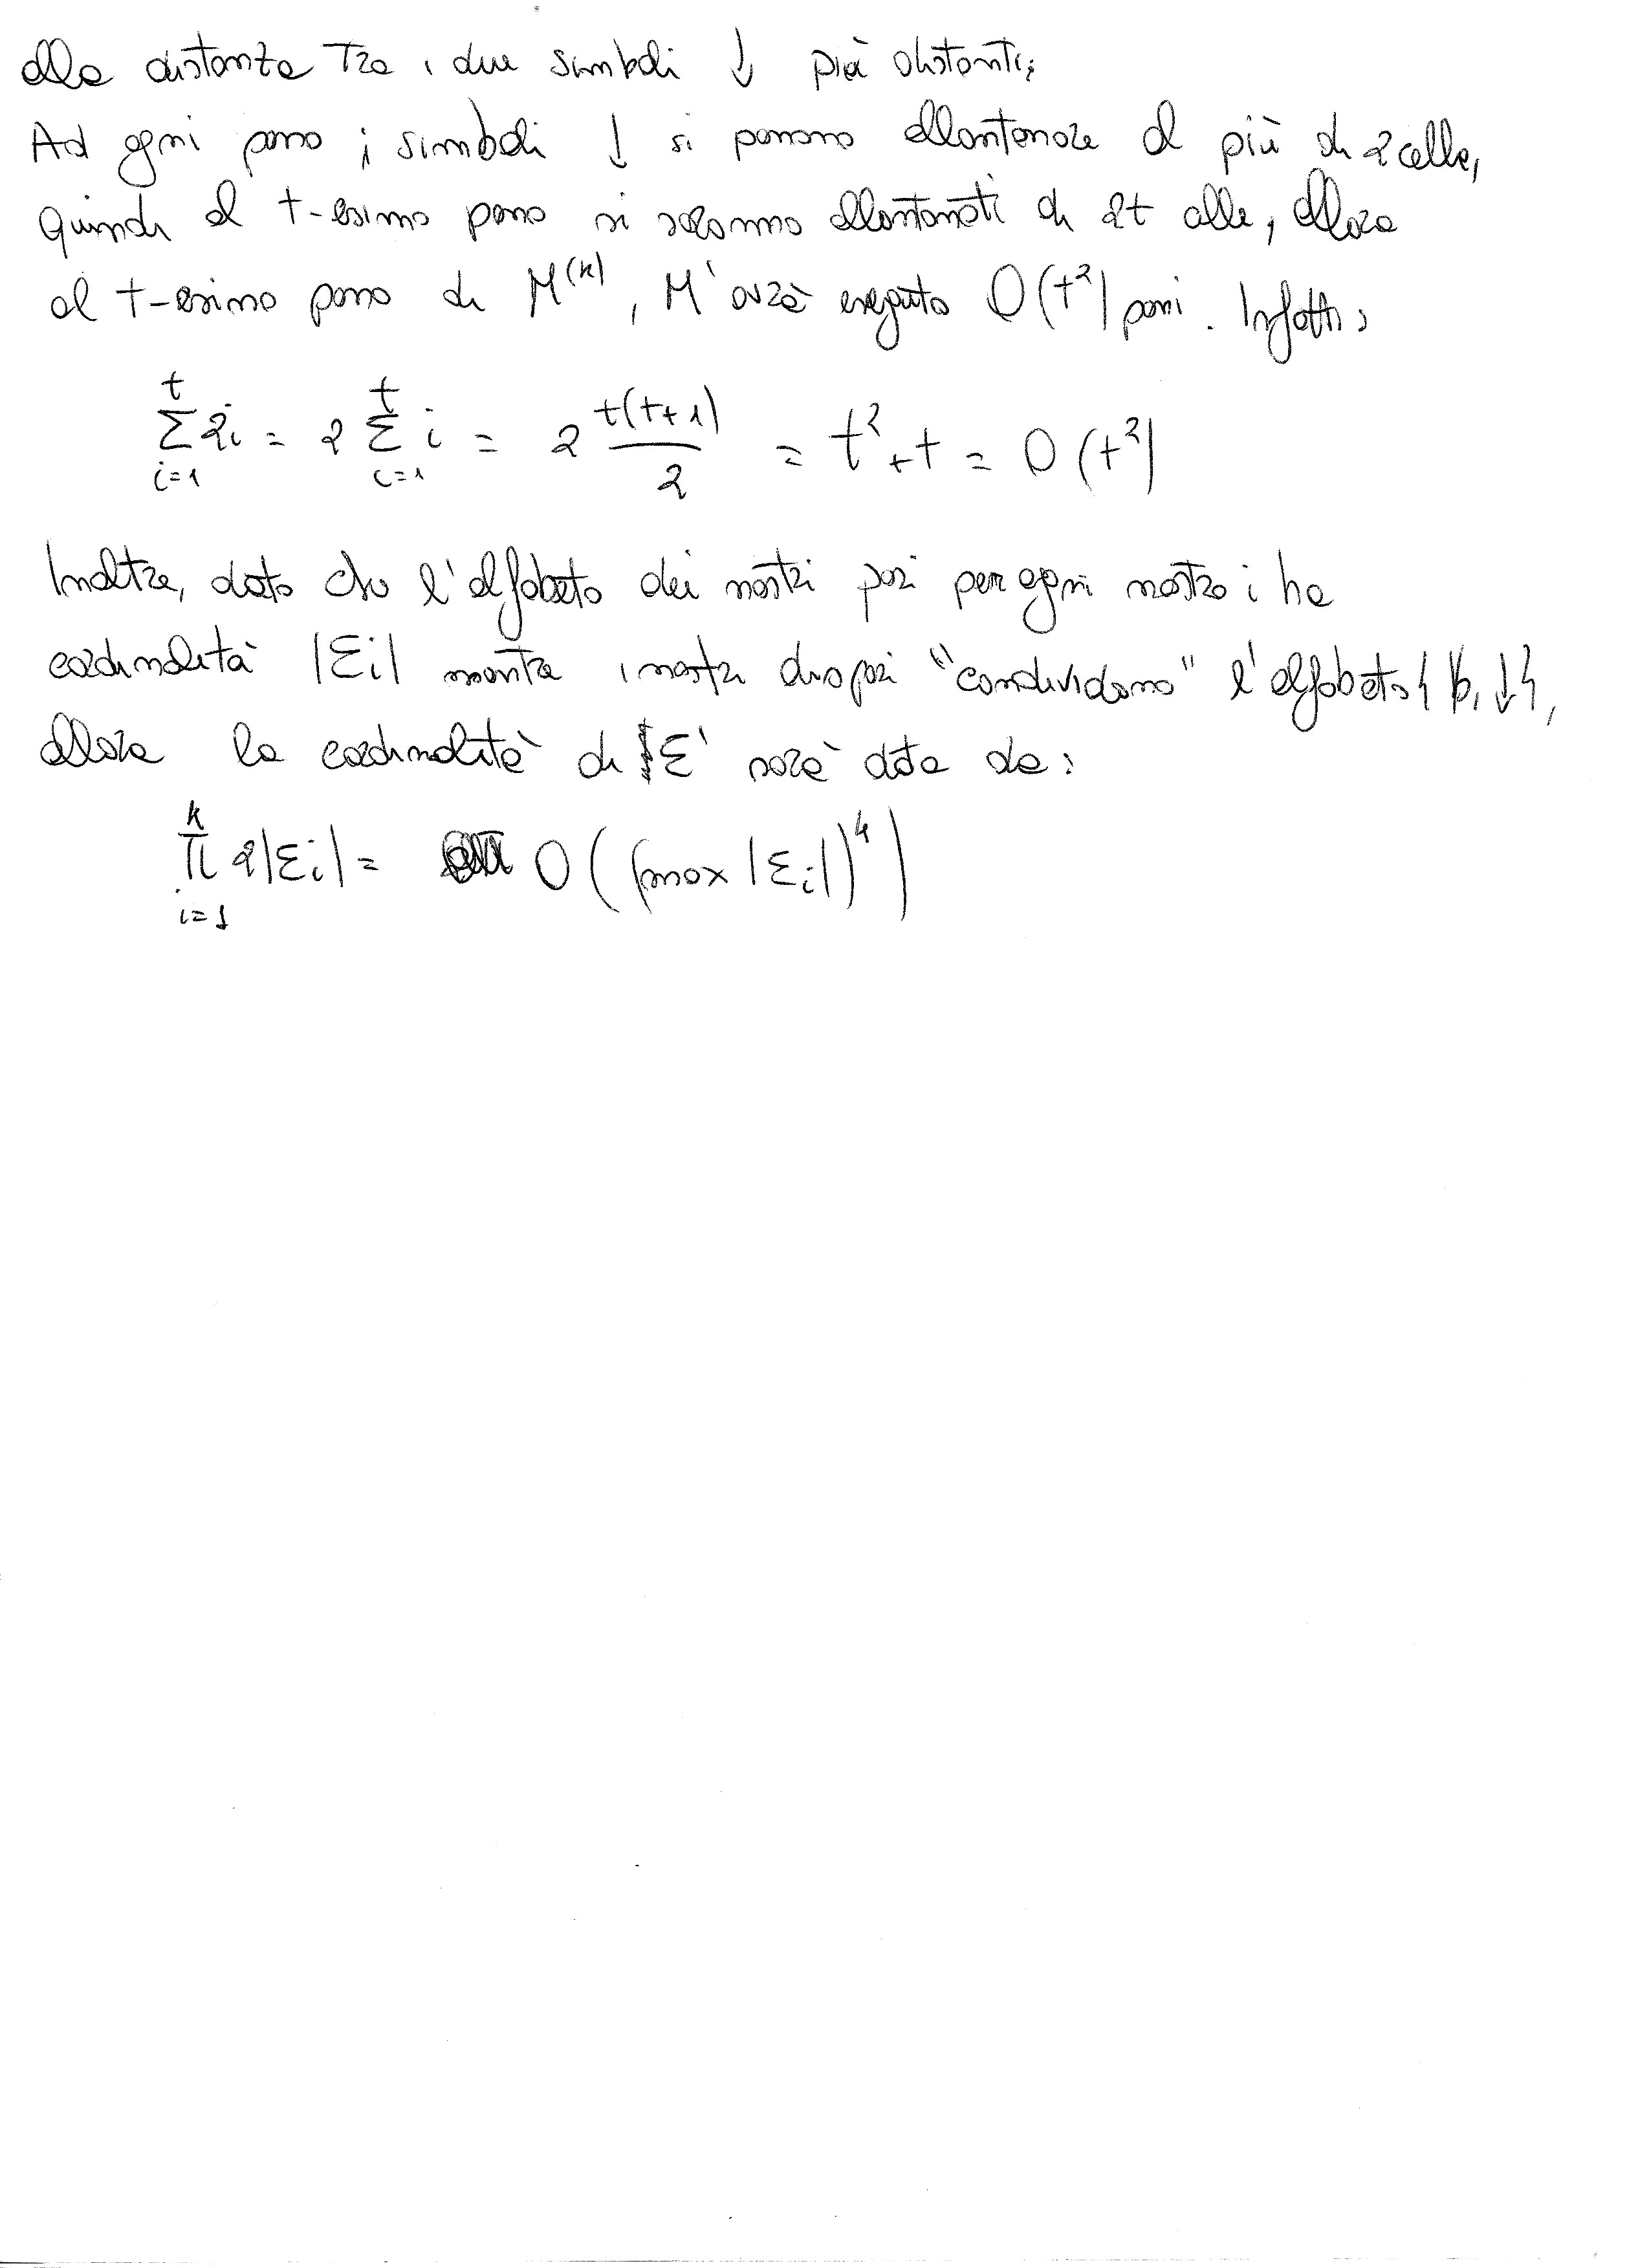 alla distanza tra i due simboli ↓ più distanti;
Ad ogni passo i simboli ↓ si possono allontanare al più di 2 celle,
quindi al t-esimo passo si saranno allontanati di 2t celle, allora
al t-esimo passo di M^(k), M' avrà eseguito O(t²) passi. Infatti:
∑_{i=1}^{t} 2i = 2 ∑_{i=1}^{t} i = 2 t(t+1)/2 = t² + t = O(t²)
Inoltre, dato che l'alfabeto dei nastri pari per ogni nastro i ha
cardinalità |Σi| mentre i nastri dispari "condividono" l'alfabeto {ƀ, ↓},
allora la cardinalità di Σ' sarà data da:
∏_{i=1}^{k} 2|Σi| = O((max |Σi|)^k)